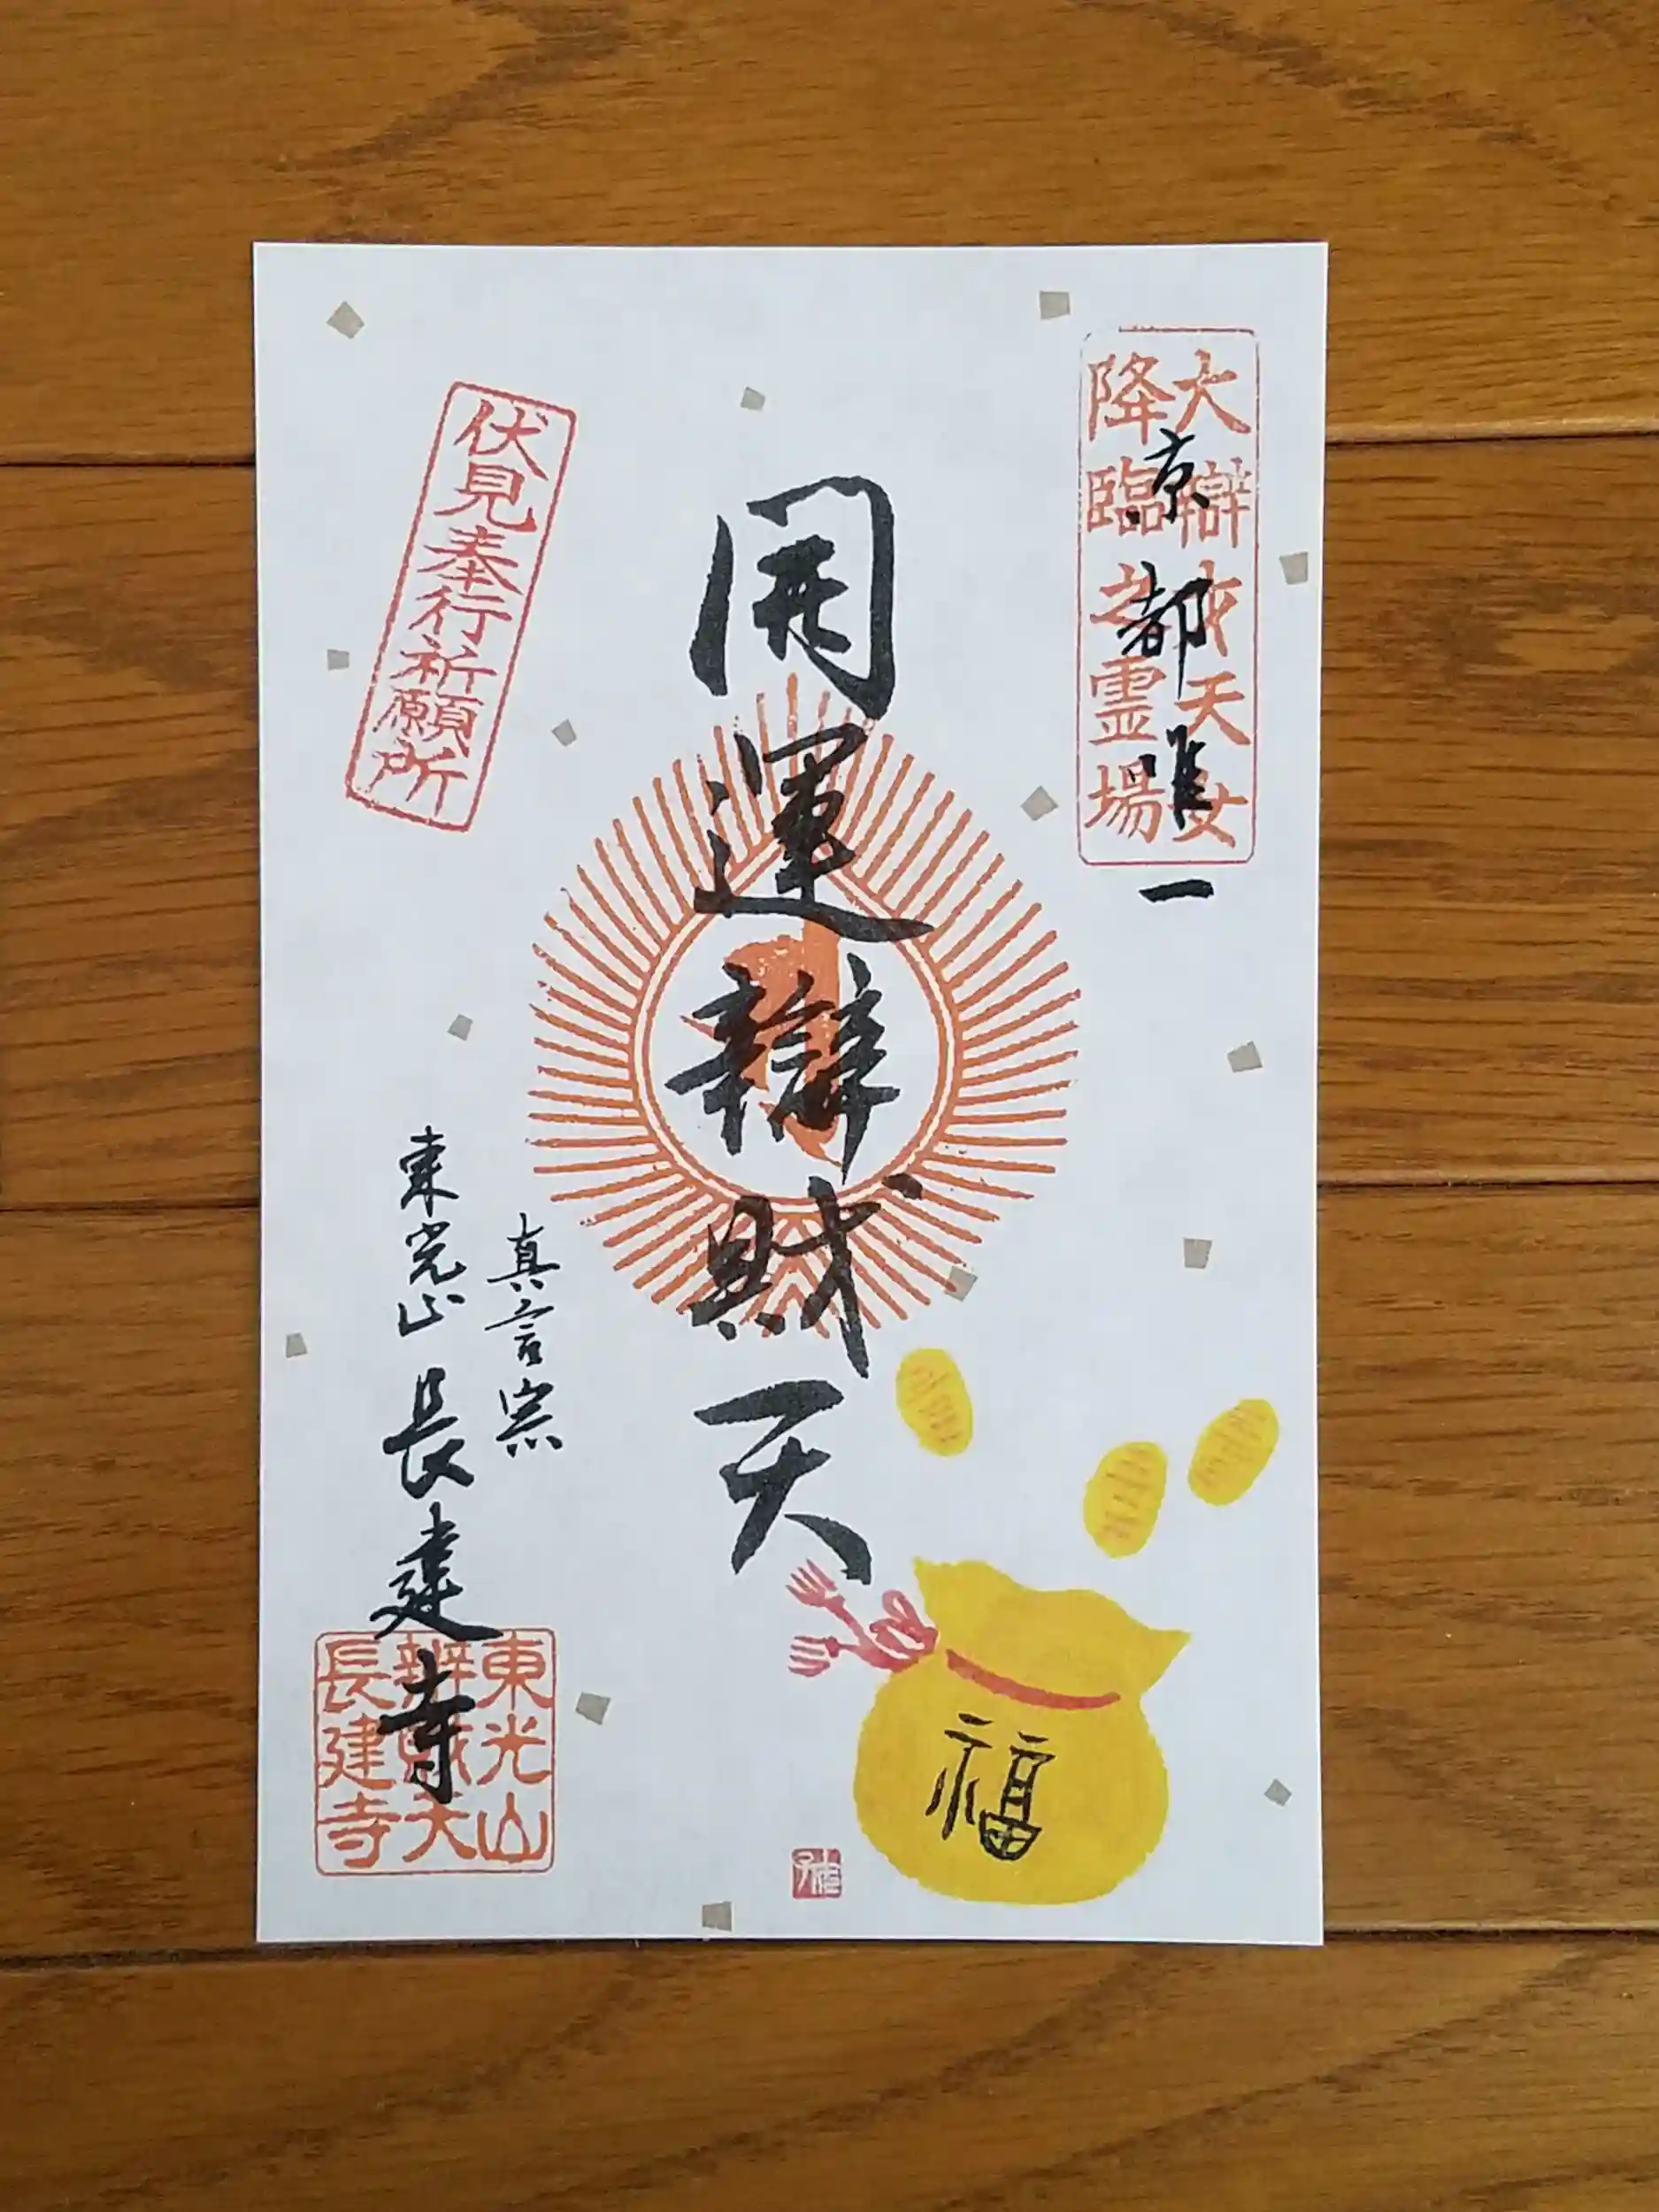 大辯才天女
降臨之霊場
京都唯一
開運辯財天
伏見奉行祈願所
真言宗
東光山 長建寺
東光山
辨財天
長建寺
福